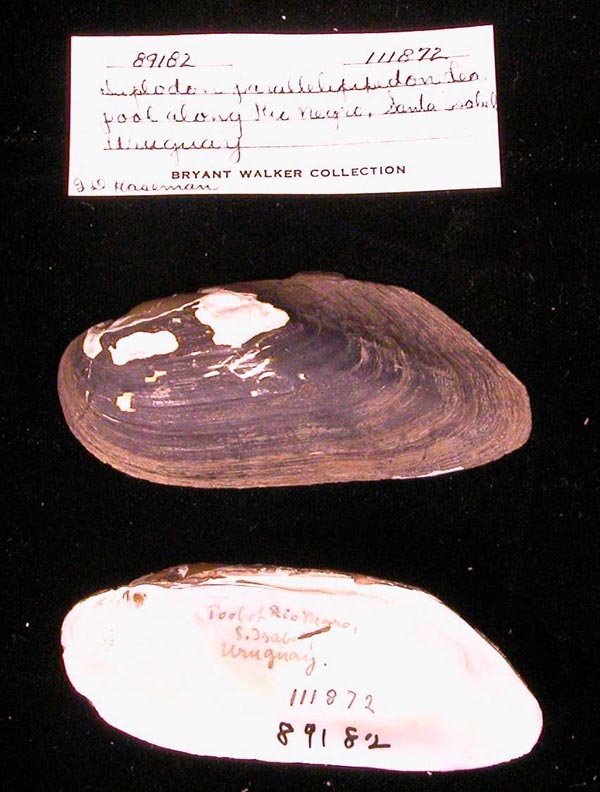 89182 111872
Diplodon parallelipipedon Lea
pool along Rio Negro, Santa Isabel
Uruguay
BRYANT WALKER COLLECTION
J D Haseman
Pool of Rio Negro,
S. Isabel,
Uruguay.
111872
89182